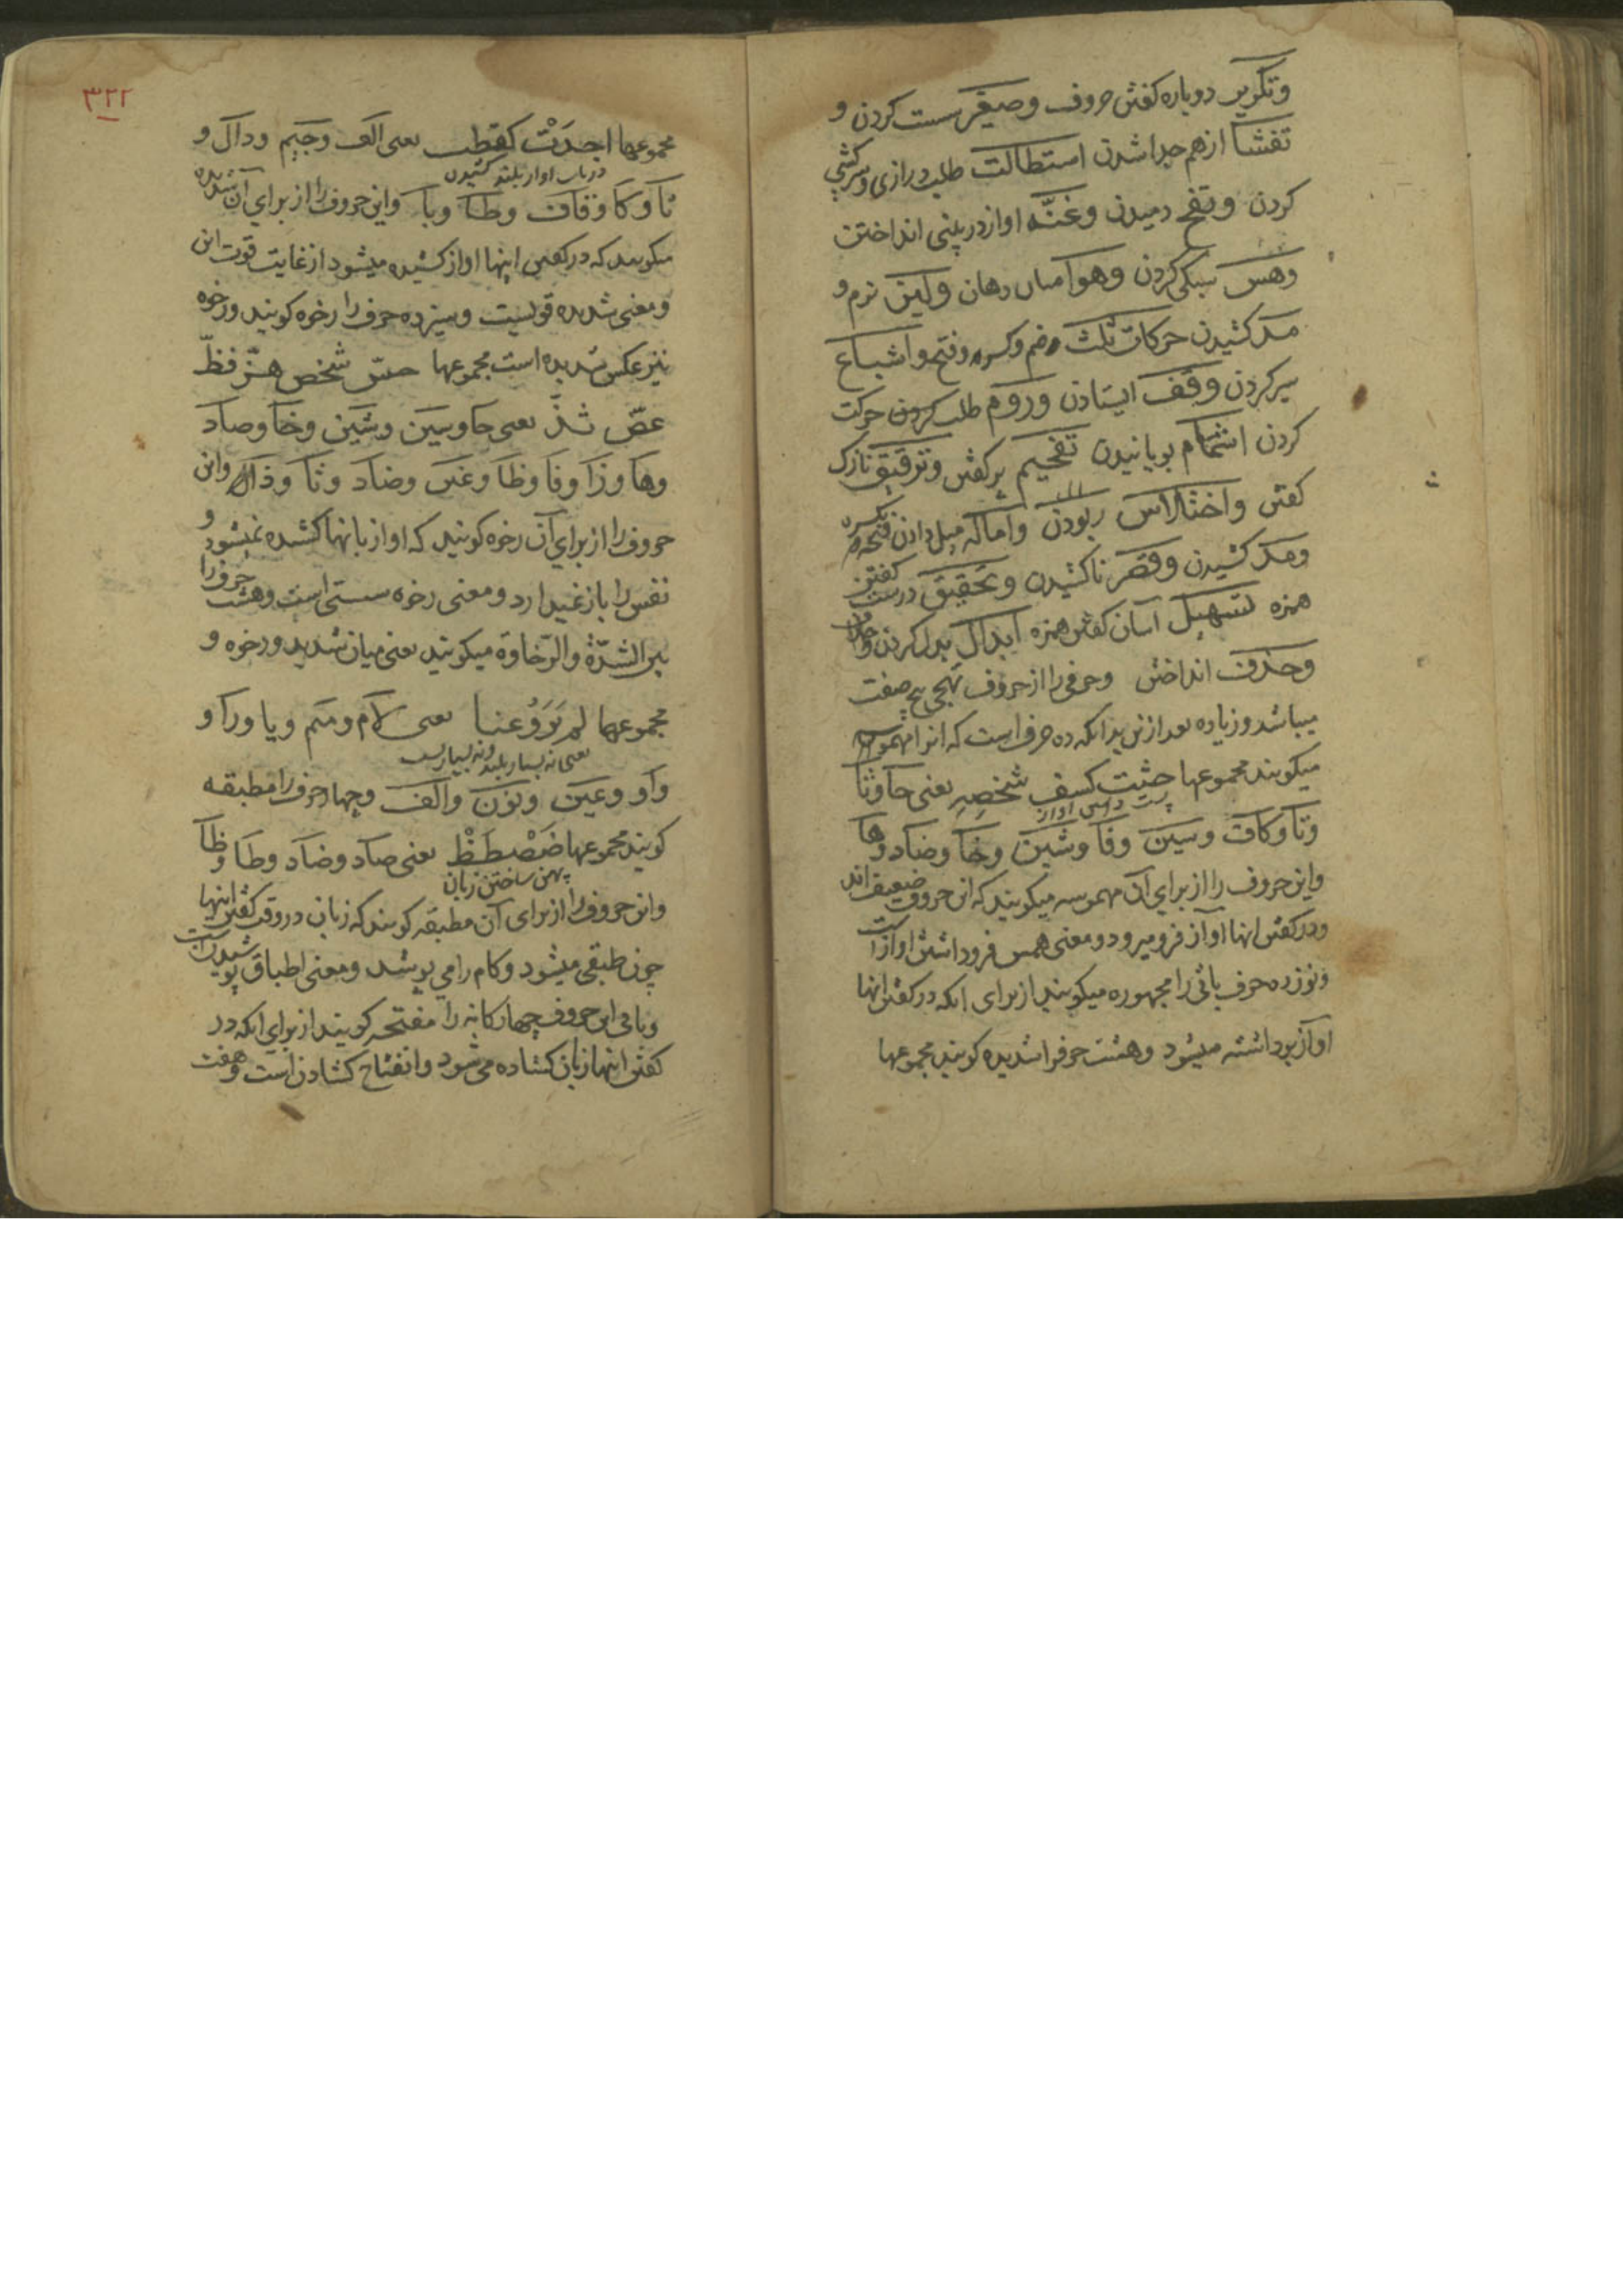 وتکریر دوباره کفتن حروف وصیغر سست کردن و
تفشا ازهم جدا شدن استطالت طلب درازی وسرکشی
کردن ونفح دمیدن وغنّه اواز در بینی انداختن
وهس سبکی کردن وهوا میان دهان ولین نرم و
مد کشیدن حرکات ثلث ضم وکسره وفتح واشباع
سیر کردن وقف ایستادن وروم طلب کردن حرکت
کردن اشمام بویانیدن تفخیم پر کفتن وترقیق نازک
کفتن واختلاس ربودن واماله میل دادن فتحه بکسره
ومد کشیدن وقصر ناکشیدن وتحقیق درست کفتن
همزه تسهیل آسان کفتن همزه ابدال بدل کردن
وحذف انداختن وحرفی را از حروف تهجی پنج صفت
میباشد وزیاده بعد ازین بدانکه ده حرف است که انرا مهموسه
میکویند مجموعها حثیت کسف شخصه یعنی حا وثا
پست داشتن اواز
وتا وکاف وسین وفا وشین وخا وصاد وها
واین حروف را از برای آن مهموسه میکویند که این حروف ضعیف اند
ودر کفتن انها آواز فرو میرود ومعنی همس فرو داشتن اواز است
ونوزده حرف باقی را مجهوره میکویند از برای انکه در کفتن انها
اواز برداشته میشود وهشت حرفرا شدیده کویند مجموعها
٣٢٢
مجموعها اجدَتْ کقطب یعنی الف وجیم ودال و
در باب اواز بلند کشیدن
تا وکا وقاف وطا وبا واین حروف را از برای آن شدیده
میکویند که در کفتن اینها اواز کشیده میشود از غایت قوت این
ومعنی شدیده قویست وسیزده حرف را رخوه کویند ورخوه
نیز عکس شدیده است مجموعها حسّ شخص هزّ فظّ
غضّ ثذّ یعنی حا وسین وشین وخا وصاد
وها وزا وفا وظا وغین وضاد وثا وذال واین
حروف را از برای آن رخوه کویند که اواز بانها کشیده نمیشود و
نفس را باز نمیدارد ومعنی رخوه سستی است وهشت حرف را
بین الشدّة والرّخاوة میکویند یعنی میان شدید ورخوه و
مجموعها لم یَرَوُعنا یعنی لام ومیم ویا ورا و
یعنی نه بسیار بلند ونه بسیار پست
واو وعین ونون والف وچهار حرف را مطبقه
کویند مجموعها ضَصْطَظْ یعنی صاد وضاد وطا وظا
پهن ساختن زبان
واین حروف را از برای آن مطبقه کویند که زبان در وقت کفتن اینها
چون طبقی میشود وکام را می پوشد ومعنی اطباق پوشیدن است
وباقی این حروف چهارکانه را مفتحه کویند از برای انکه در
کفتن اینها زبان کشاده می شود وانفتاح کشادن است وهفت